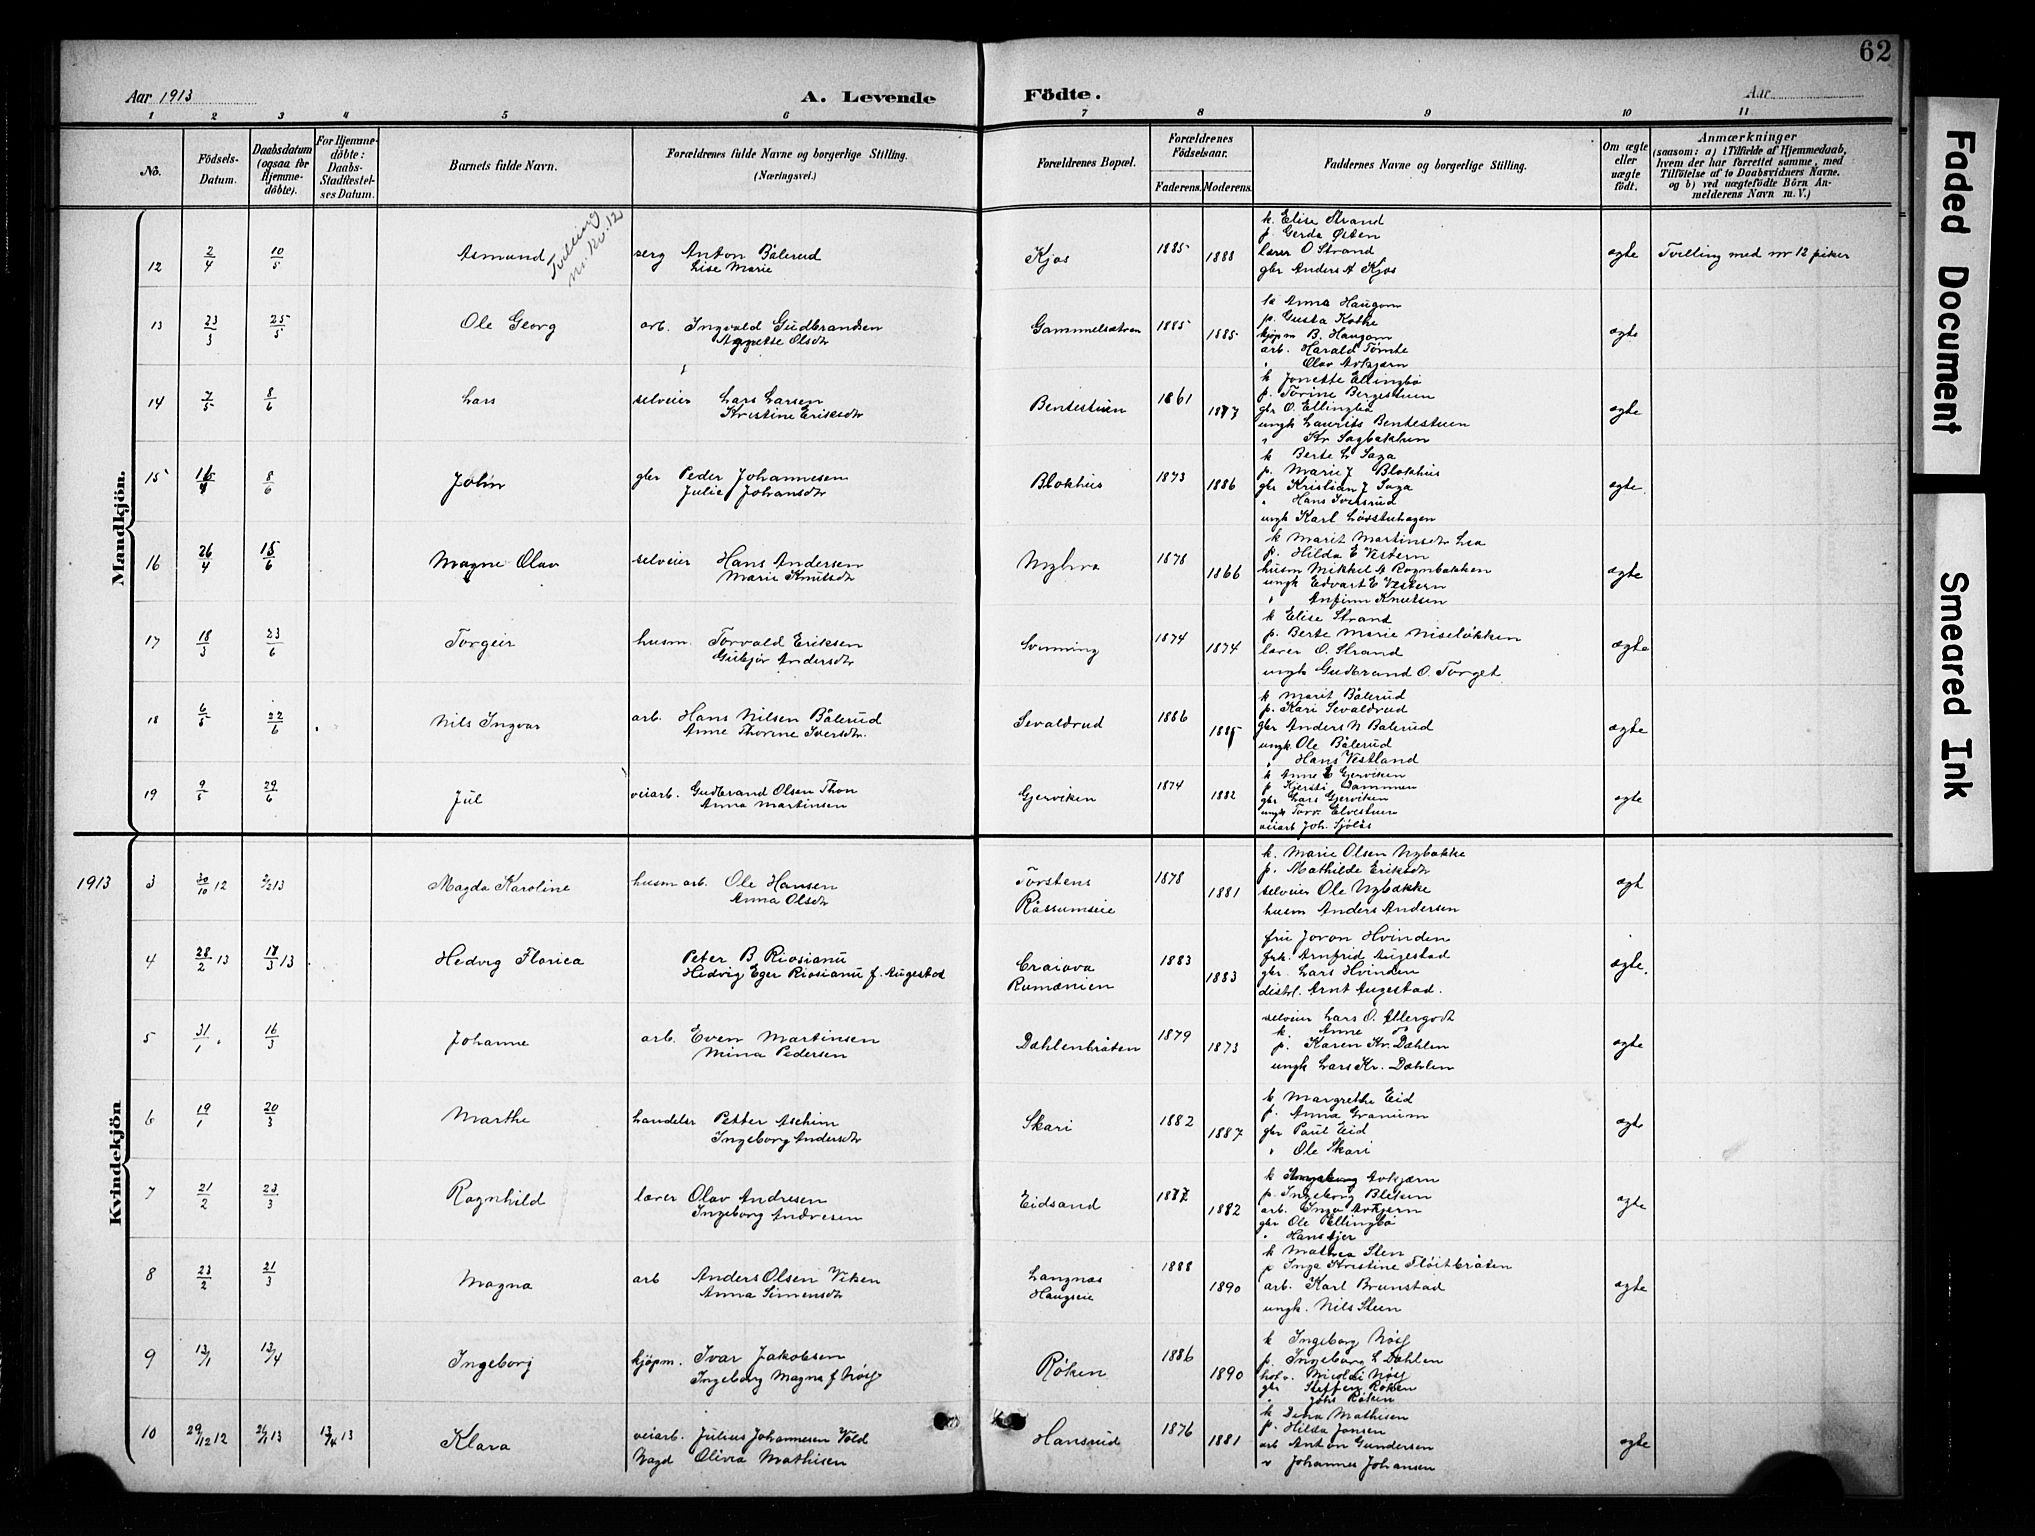 62
Aar 1913
A. Levende
Födte.
Aar
1 2 3 4 5 6 7 8 9 10 11
No.
Födsels-
Datum.
Daabsdatum
(ogsaa for
Hjemme-
döbte).
For Hjemme-
döbte:
Daabs-
Stadfestel-
ses Datum.
Barnets fulde Navn.
Forældrenes fulde Navne og borgerlige Stilling.
(Næringsvei.)
Forældrenes Bopæl.
Forældrenes
Födselsaar.
Faderens. Moderens.
Faddernes Navne og borgerlige Stilling.
Om ægte
eller
uægte
födt.
Anmærkninger
(saasom: a) i Tilfælde af Hjemmedaab,
hvem der har forrettet samme, med
Tilföielse af to Daabsvidners Navne.
og b) ved uægtefödte Börn An-
melderens Navn m. V.)
Mandkjön.
12 2/4 10/5 Asmund Tvilling m. No. 12 serg Anton Bålerud
Lise Marie
Kjos 1885 1888
k. Elise Strand
p. Gerda Østen
lærer O Strand
gbr Anders A Kjos
ægte Tvilling med nr 12 piker
13 23/3 25/5 Ole Georg arb. Ingvald Gudbrandsen
Agnette Olsdtr
Gammelsætren 1885 1885
k Anna Haugom
p. Gusta Kothe
kjøpm B. Haugom
arb. Harald Tømte
" Olav Avkjærn
ægte
14 7/5 8/6 Lars selveier Lars Larsen
Kristine Eriksdtr
Bentestuen 1861 1877
k Jonette Ellingbø
p. Torine Bergestuen
gbr O. Ellingbø
ungk Laurits Bentestuen
" Kr Sagbakken
ægte
15 8/6 John gbr Peder Johannesen
Julie Johansdtr
Blokhus 1873 1886
k Berte L Saga
p. Marie J Blokhus
gbr Kristian J Saga
" Hans Iversrud
ungk Karl Løvstuhagen
ægte
16 26/4 15/6 Magne Olav selveier Hans Andersen
Marie Knutsdtr
Myhra 1878 1866
k Marit Martinsdtr Lia
p. Hilda E Vestern
husm Mikkel A Rognbakken
ungk Edvart E Vestern
" Anfinn Knutsen
ægte
17 18/3 23/6 Torgeir husm. Torvald Eriksen
Gubjør Andersdtr
Svenning 1874 1874
k Elise Strand
p. Berte Marie Niseløkken
lærer O. Strand
ungk Gudbrand O. Torget
ægte
18 6/5 22/6 Nils Ingvar arb. Hans Nilsen Bålerud
Anne Thorine Iversdtr.
Sevaldrud 1886 1885
k Marit Bålerud
p. Kari Sevaldrud
gbr Anders N Balerud
ungk Ole Bålerud
" Hans Vestland
ægte
19 9/5 29/6 Jul veiarb. Gudbrand Olsen Thon
Anna Martinsen
Gjerviken 1874 1882
k Anne E Gjerviken
p Kjersti Dammen
gbr Lars Gjerviken
ungk Torv. Elvestuen
veiarb Joh. Sjölås
ægte
Kvindekjön
1913 3 30/10 12 2/2 13 Magda Karoline husm arb. Ole Hansen
Anna Olsdtr
Torstens
Råssumseie
1878 1881
k. Marie Olsen Nybakke
p. Mathilde Eriksdtr
selveier Ole Nybakke
husm Anders Andersen
ægt
4 28/2 13 18/3 13 Hedvig Florica Peter B Riosianu
Hedvig Eger Riosianu f. Augestad
Craiova
Rumænien
1883 1883
fru Joron Hvinden
frk. Arnfrid Augestad
gbr. Lars Hvinden
distrl. Arnt Augestad.
ægte.
5 31/1 16/3 Johanne arb. Even Martinsen
Mina Pedersen
Dæhlenbråten 1879 1873
selveier Lars O. Allergodt
k Anne do
p. Karen Kr. Dæhlen
ungk Lars Kr. Dæhlen
ægte
6 19/1 20/3 Marthe handelsr Petter Aschim
Ingeborg Andersdtr
Skari 1882 1887
k Margrethe Eid
p. Anna Granum
gbr Paul Eid
" Ole Skari
ægte
7 21/2 23/3 Ragnhild lærer Olav Andresen
Ingeborg Andresen
Eidsand 1877 1882
k Avkjærn
p. Ingeborg Bleken
arb. Inga Avkjern
gbr Ole Ellingbø
" Hans Ejer
ægte
8 23/2 21/3 Magna arb Anders Olsen Viken
Anna Simensdtr
Langnas
Haugseie
1888 1890
k Mathea Sten
p Inga Kristine Fløitbråten
arb. Karl Brunstad
ungk. Nils Steen
ægte
9 12/1 12/4 Ingeborg kjøpm. Ivar Jakobsen
Ingeborg Magna f Nøss
Røken 1886 1890
k Ingeborg Nøss
p. Ingeborg L Dæhlen
Nicolai Nøss
gbr Steffen Røken
" Johs Røken
10 29/12 12 26/1 13 13/4 13 Klara veiarb. Julius Johannesen Vold
Magd Olivia Mathisen
Hansrud 1876 1881
k Dina Mathisen
p. Hilda Jonsen
arb Anton Gundersen
" Johannes Johansen
ægte
Faded Document
Smeared Ink